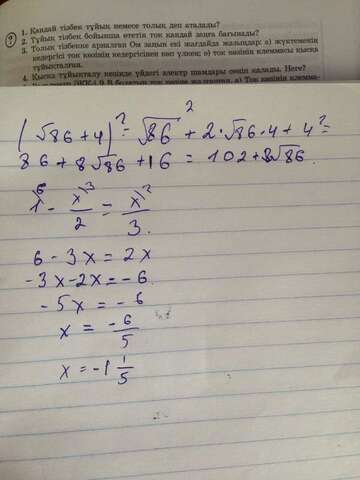 1. Қандай тізбек тұйық немесе толық деп аталады?
2. Тұйық тізбек бойынша өтетін ток қандай заңға бағынады?
3. Толық тізбекке арналған Ом заңын екі жағдайда жазыңдар: а) жүктеменің
кедергісі ток көзінің кедергісінен көп үлкен; ә) ток көзінің клеммасы қысқа
тұйықталған.
4. Қысқа тұйықталу кезінде үйдегі электр шамдары сөніп қалады. Неге?
(√86+4)² = √86² + 2·√86·4 + 4² =
86 + 8√86 + 16 = 102 + 8√86.
1\6 - x\3/2 = x\2/3.
6 - 3x = 2x
-3x - 2x = -6
-5x = -6
x = -6/5
x = -1 1/5